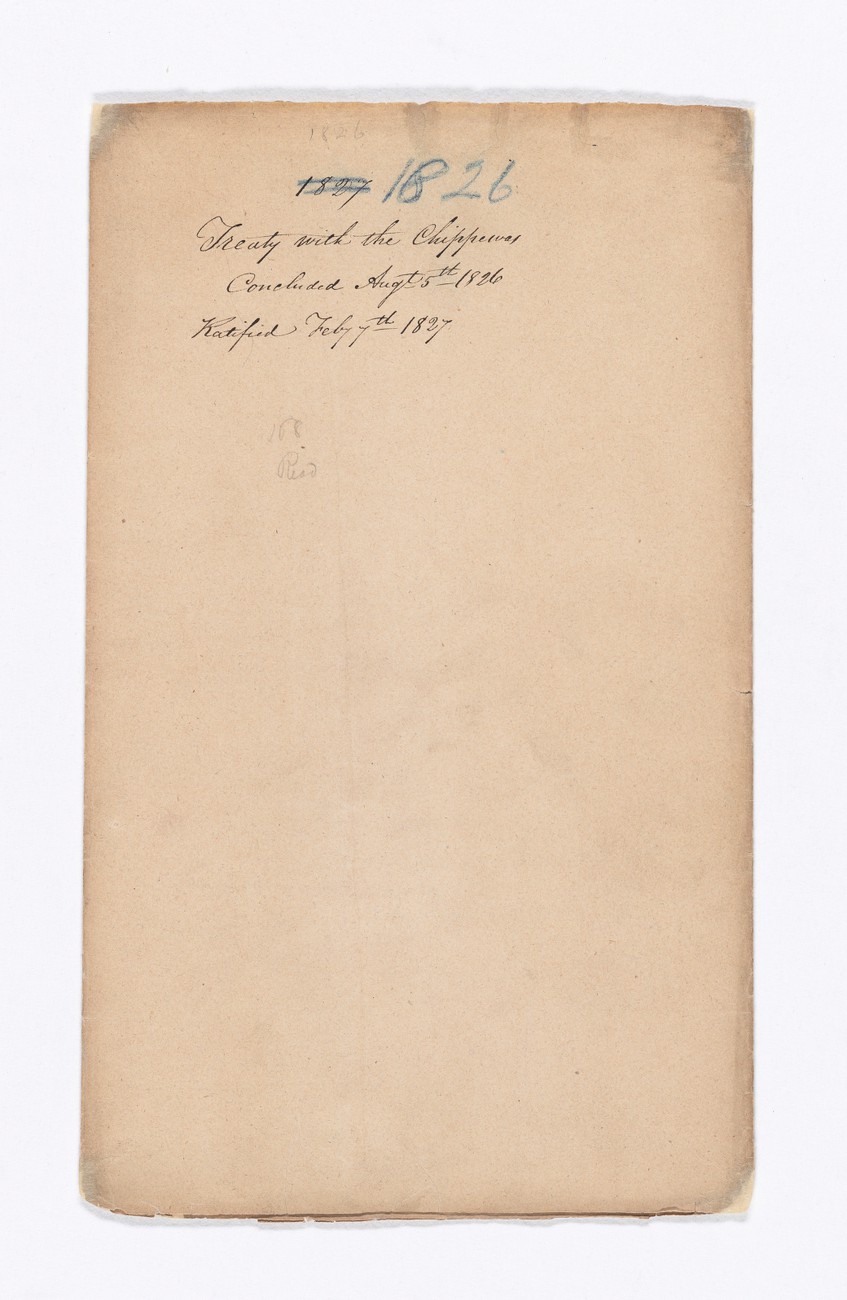 1826
1827 1826
Treaty with the Chippewas
Concluded Augt 5th 1826
Ratified Feby 7th 1827
168